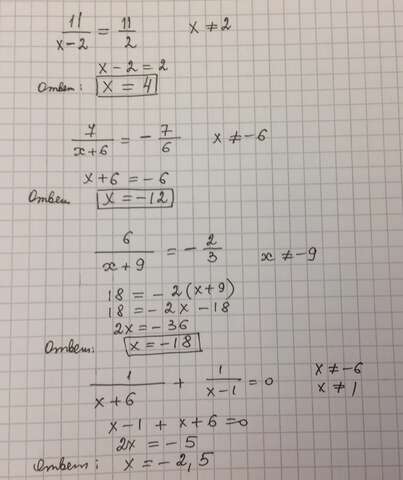 11/(x-2) = 11/2   x ≠ 2
x - 2 = 2
Ответ: x = 4
7/(x+6) = - 7/6   x ≠ -6
x + 6 = -6
Ответ x = -12
6/(x+9) = - 2/3   x ≠ -9
18 = -2(x+9)
18 = -2x - 18
2x = -36
Ответ: x = -18
1/(x+6) + 1/(x-1) = 0   x ≠ -6
x ≠ 1
x - 1 + x + 6 = 0
2x = -5
Ответ: x = -2,5